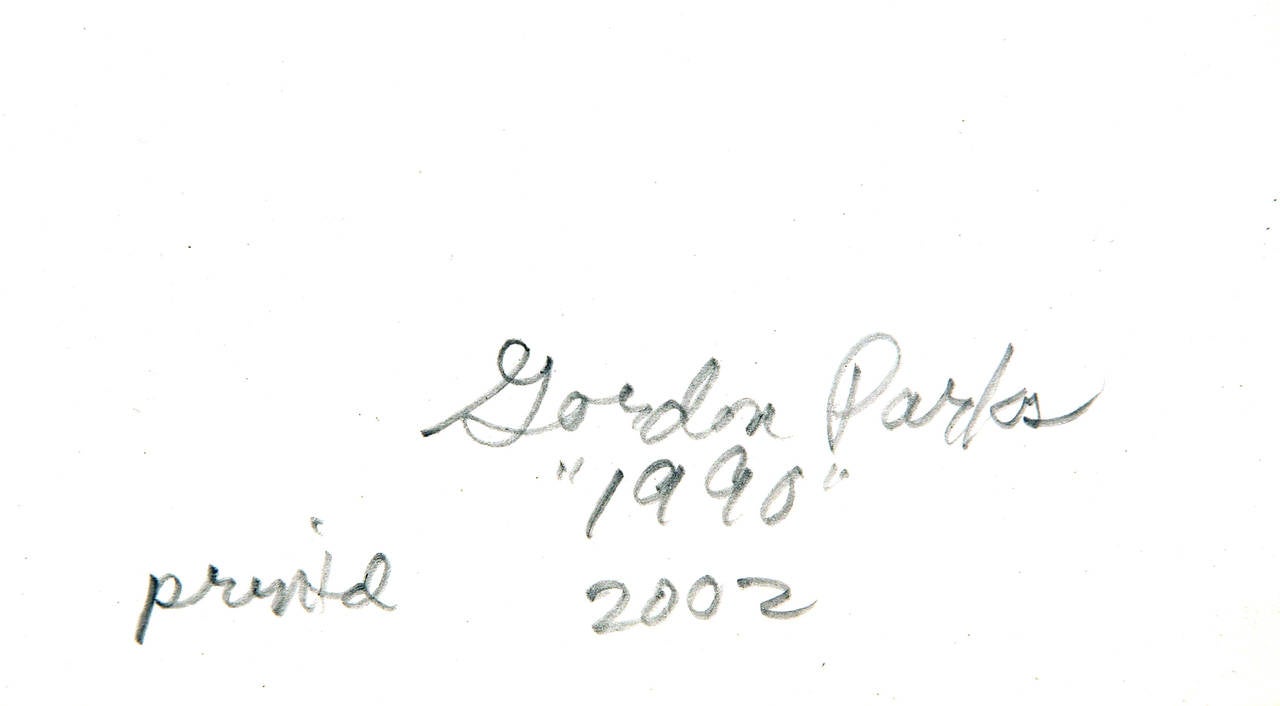 Gordon Parks
"1990"
printd 2002